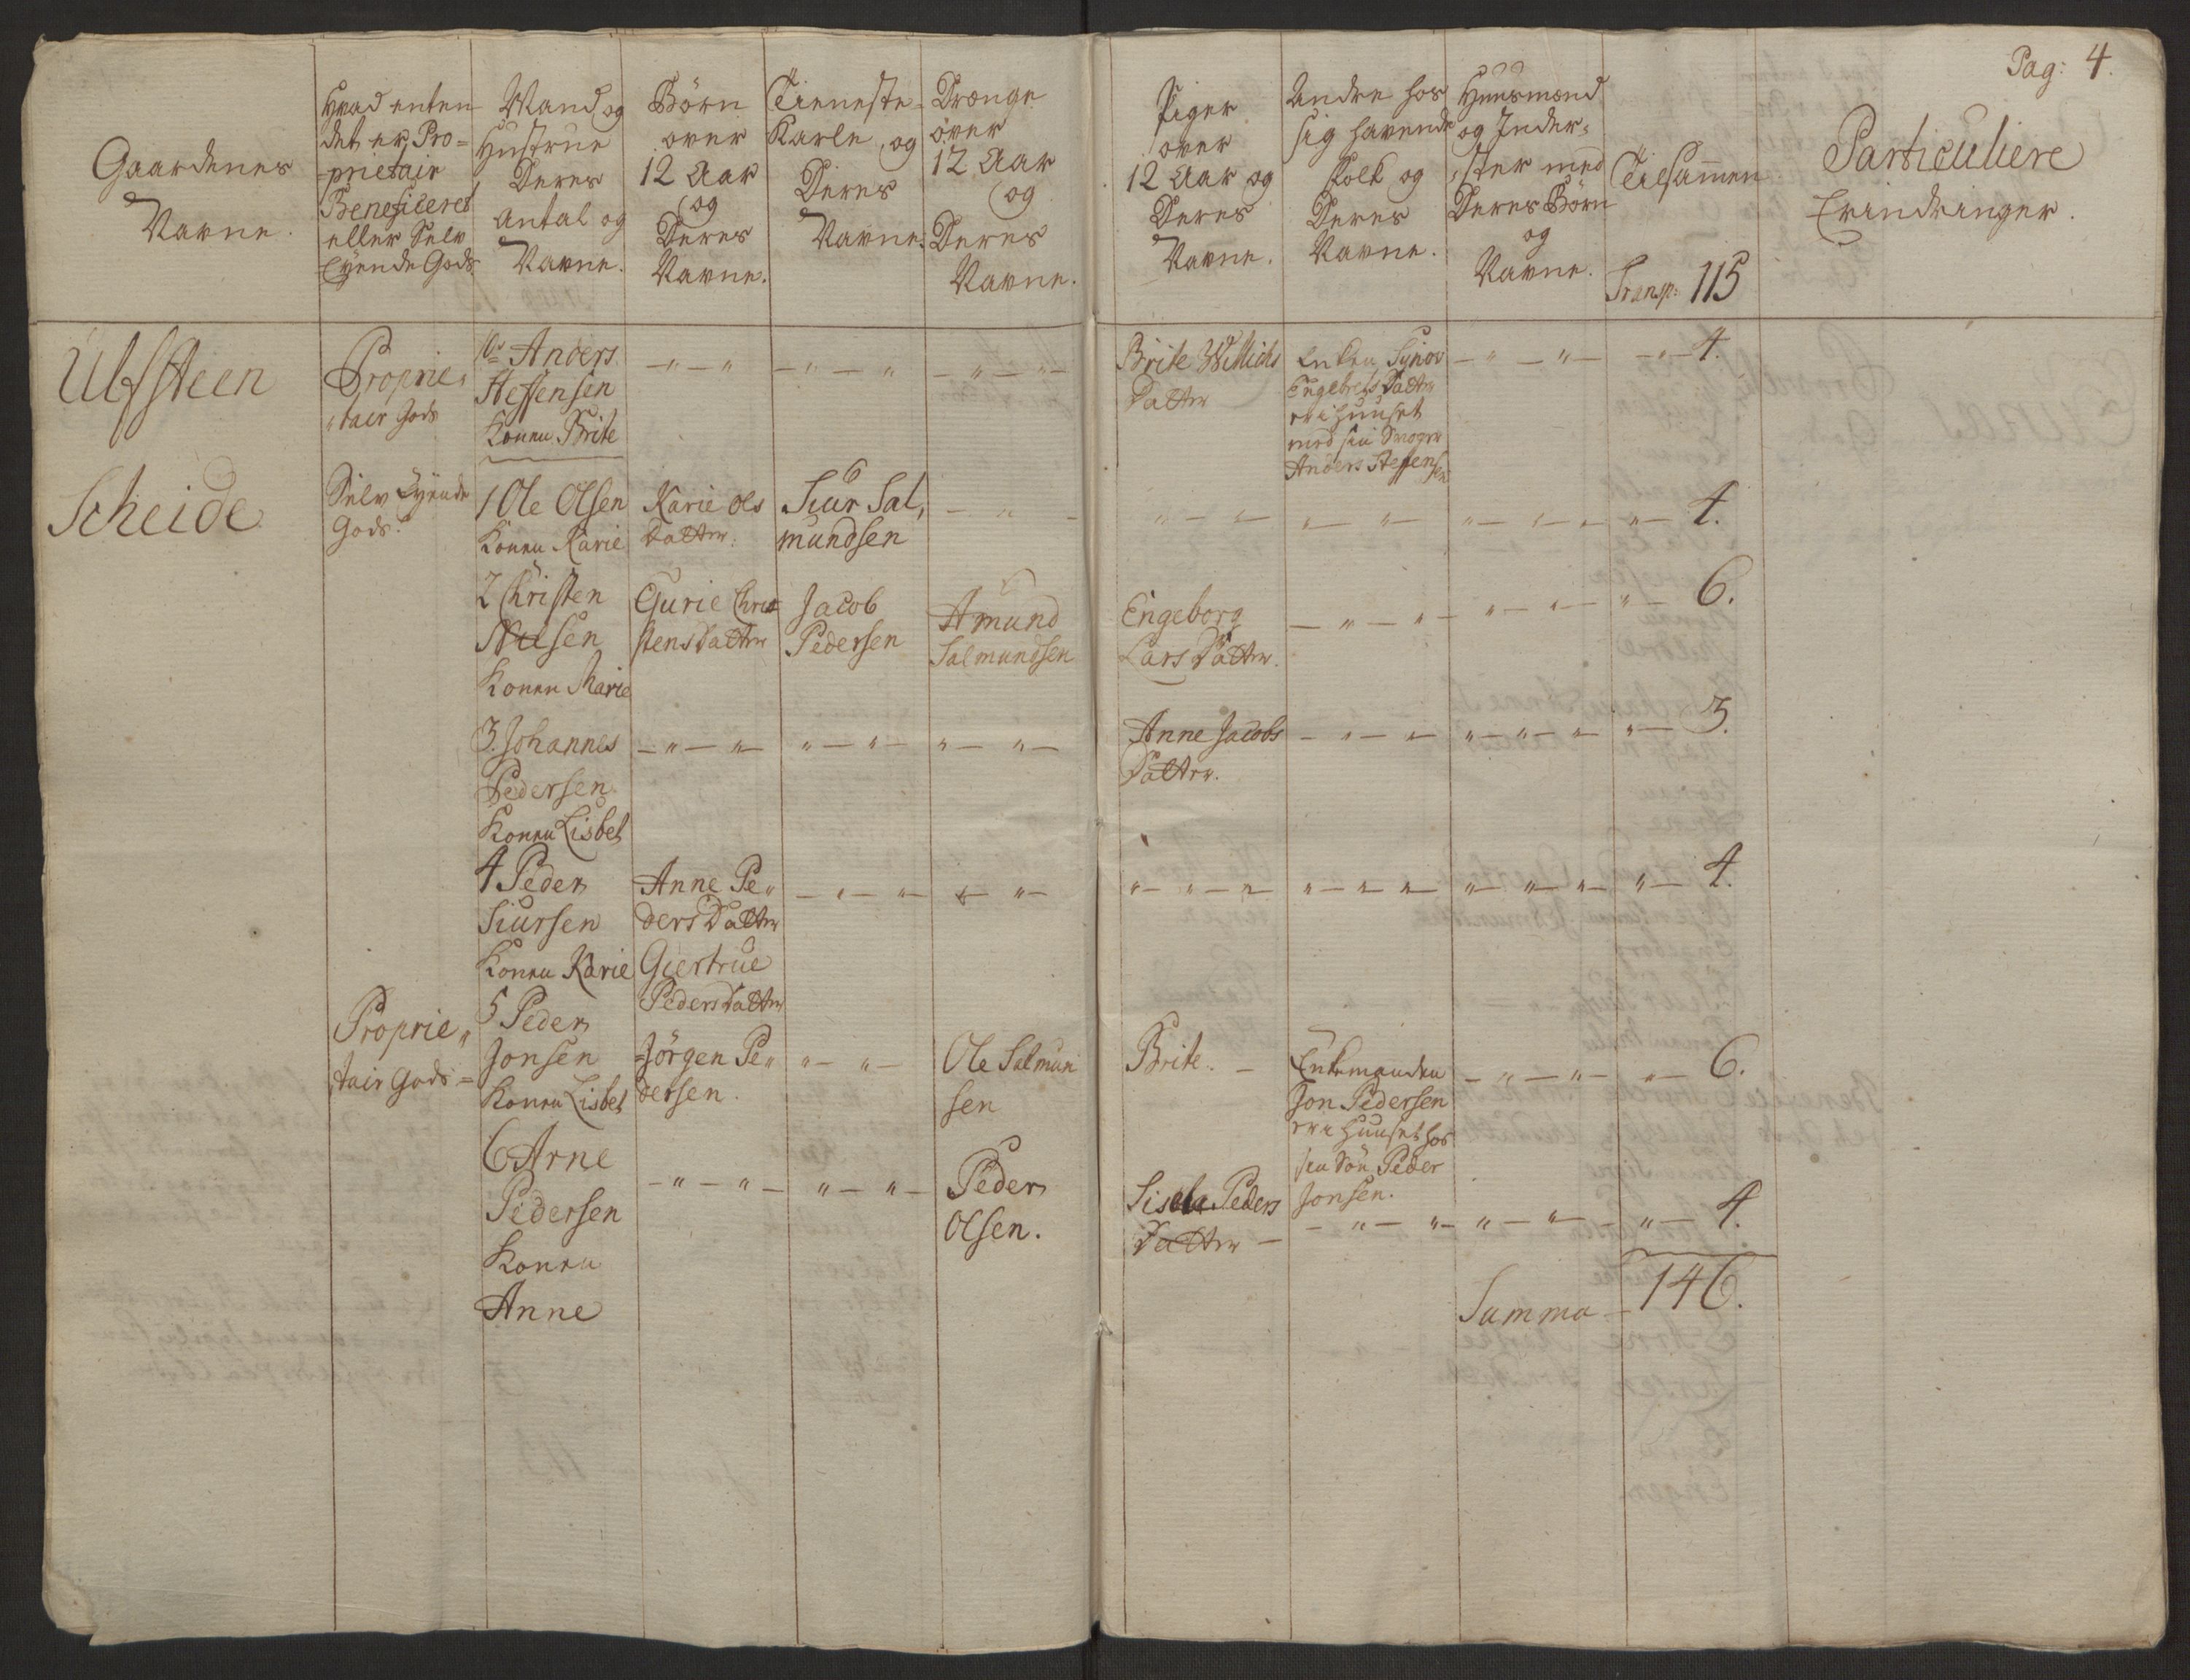 Pag: 4.
Gaardenes
Navne.
Hvad enten
det er Pro=
=prietair
Beneficeret
eller Selv
Eyende Gods
Mand og
Hustrue
Deres
Antal og
Navne.
Börn
over
12 Aar
og
Deres
Navne.
Tieneste
Karle, og
Deres
Navne.
Drænge
över
12 Aar
og
Deres
Navne.
Piger
over
12 Aar og
Deres
Navne.
Andre hos
sig havende
Folk og
Deres
Navne.
Huusmænd
og Inder=
ster med
Deres Börn
og
Navne.
Tilsammen
Transp: 115
Particuliere
Erindringer.
Ulfsteen
Proprie
tair Gods
Anders
Steffensen
Konen Brite
— " — "
— " — "
— " — " —
Brite Willichs
Datter
Enken Synov
Engebrets Datter
er i Huuset
med sin Svoger
Anders Steffensen
— " — " —
— " — 4.
Scheide
Selv Eyende
Gods.
1 Ole Olsen
Konen Karie
Karie Ols
Datter.
Siur Sal,
mundsen
— " —
4.
2 Christen
Nilsen
Konen Marie
Gurie Chri
stensDatter
Jacob
Pedersen
Amund
Salmundsen
Engeborg
Lars Datter.
— " — " —
6.
3. Johannes
Pedersen
Konen Lisbet
— " — " —
" — " —
" — " —
Anne Jacobs
Datter.
3.
4 Peder
Siursen
Konen Karie
Anne Pe"
ders Datter
Giertrue
PedersDatter
4.
Proprie"
tair Gods=
5 Peder
Jonsen
Konen Lisbet
Jörgen Pe"
dersen.
" — " —
Ole Salmun
sen
Brite. —
Enkemanden
Jon Pedersen
er i Huuset hos
sin Sön Peder
Jonsen.
— " — " —
" — 6.
6 Arne
Pedersen
Konen
Anne
— " — " —
" — " —
Peder
Olsen.
Peders
Datter —
— " — " —
" — 4.
Summa — 146.